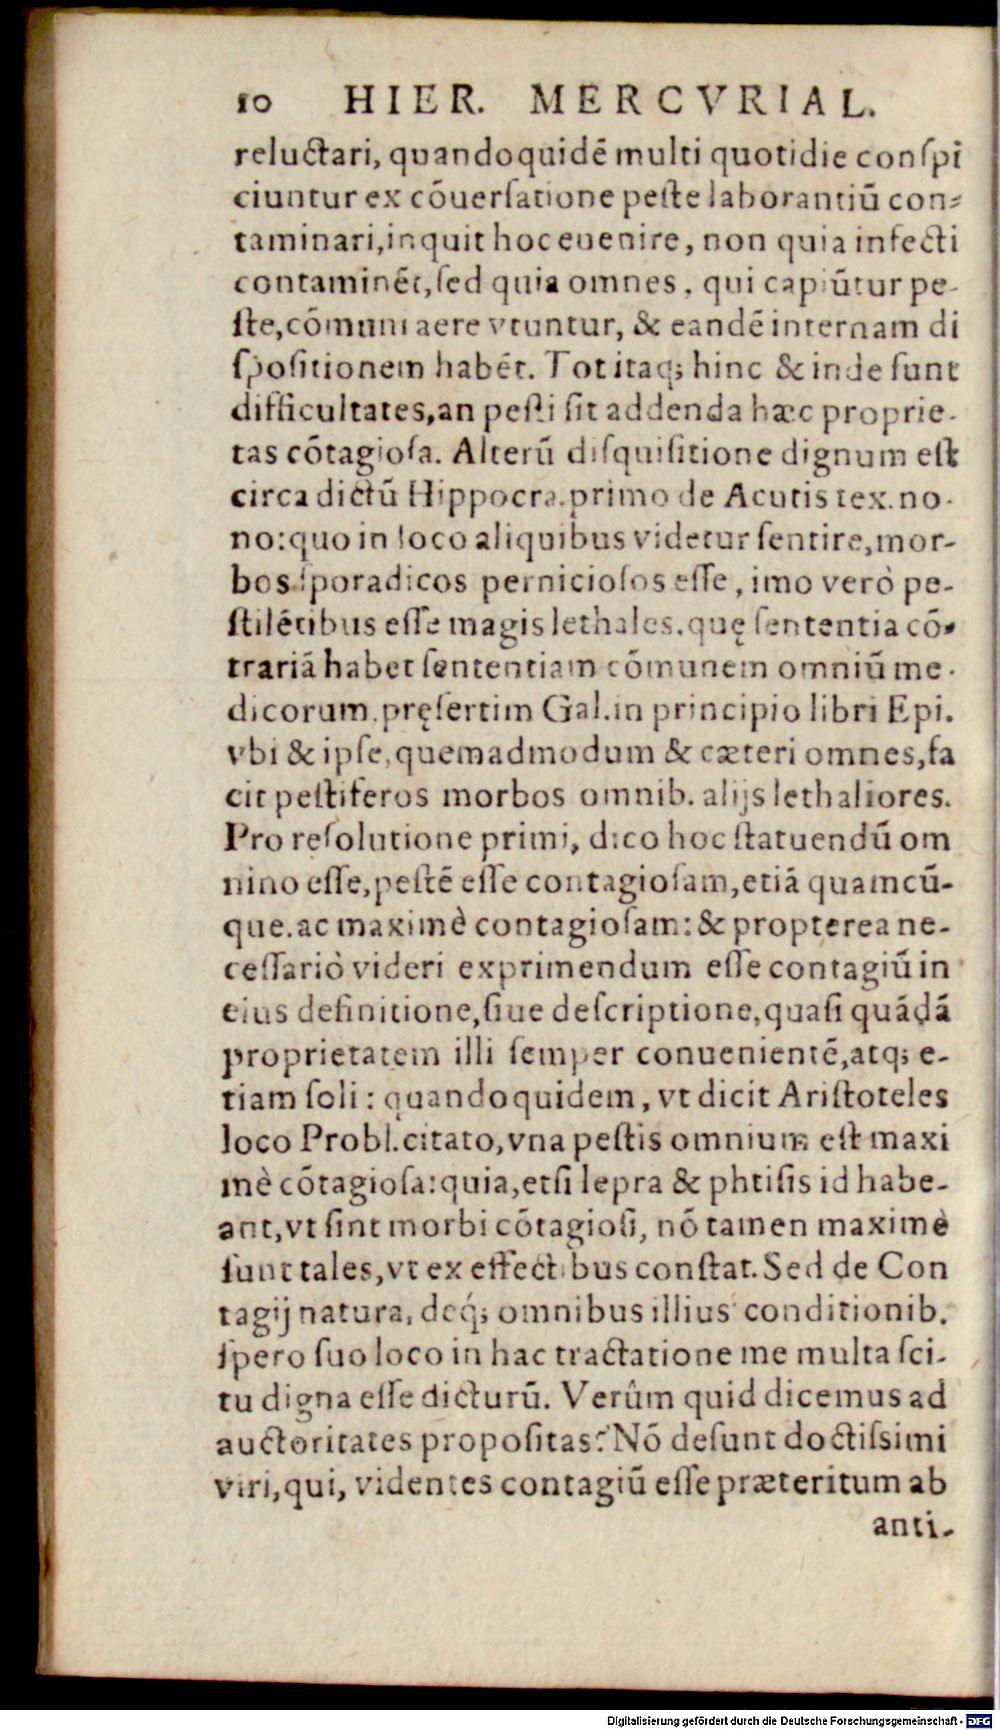 10 HIER. MERCVRIAL.
reluctari, quandoquidē multi quotidie conſpi
ciuntur ex cōuerſatione peſte laborantiū con-
taminari, inquit hoc euenire, non quia infecti
contaminēt, ſed quia omnes, qui capiūtur pe-
ſte, cōmuni aere vtuntur, & eandē internam di
ſpoſitionem habēt. Tot itaq; hinc & inde ſunt
difficultates, an peſti ſit addenda hæc proprie-
tas cōtagioſa. Alterū diſquiſitione dignum eſt
circa dictū Hippocra. primo de Acutis tex. no-
no: quo in loco aliquibus videtur ſentire, mor-
bos ſporadicos pernicioſos eſſe, imo verò pe-
ſtilētibus eſſe magis lethales. quę ſententia cō-
trariā habet ſententiam cōmunem omniū me-
dicorum, pręſertim Gal. in principio libri Epi.
vbi & ipſe, quemadmodum & cæteri omnes, fa
cit peſtiferos morbos omnib. alijs lethaliores.
Pro reſolutione primi, dico hoc ſtatuendū om
nino eſſe, peſtē eſſe contagioſam, etiā quamcū-
que. ac maximè contagioſam: & propterea ne-
ceſſariò videri exprimendum eſſe contagiū in
eius definitione, ſiue deſcriptione, quaſi quādā
proprietatem illi ſemper conuenientē, atq; e-
tiam ſoli: quandoquidem, vt dicit Ariſtoteles
loco Probl. citato, vna peſtis omnium eſt maxi
mè cōtagioſa: quia, etſi lepra & phtiſis id habe-
ant, vt ſint morbi cōtagioſi, nō tamen maximè
ſunt tales, vt ex effectibus conſtat. Sed de Con
tagij natura, deq́; omnibus illius conditionib.
ſpero ſuo loco in hac tractatione me multa ſci-
tu digna eſſe dicturū. Verûm quid dicemus ad
auctoritates propoſitas? Nō deſunt doctiſsimi
viri, qui, videntes contagiū eſſe præteritum ab
anti-
Digitalisierung gefördert durch die Deutsche Forschungsgemeinschaft - DFG